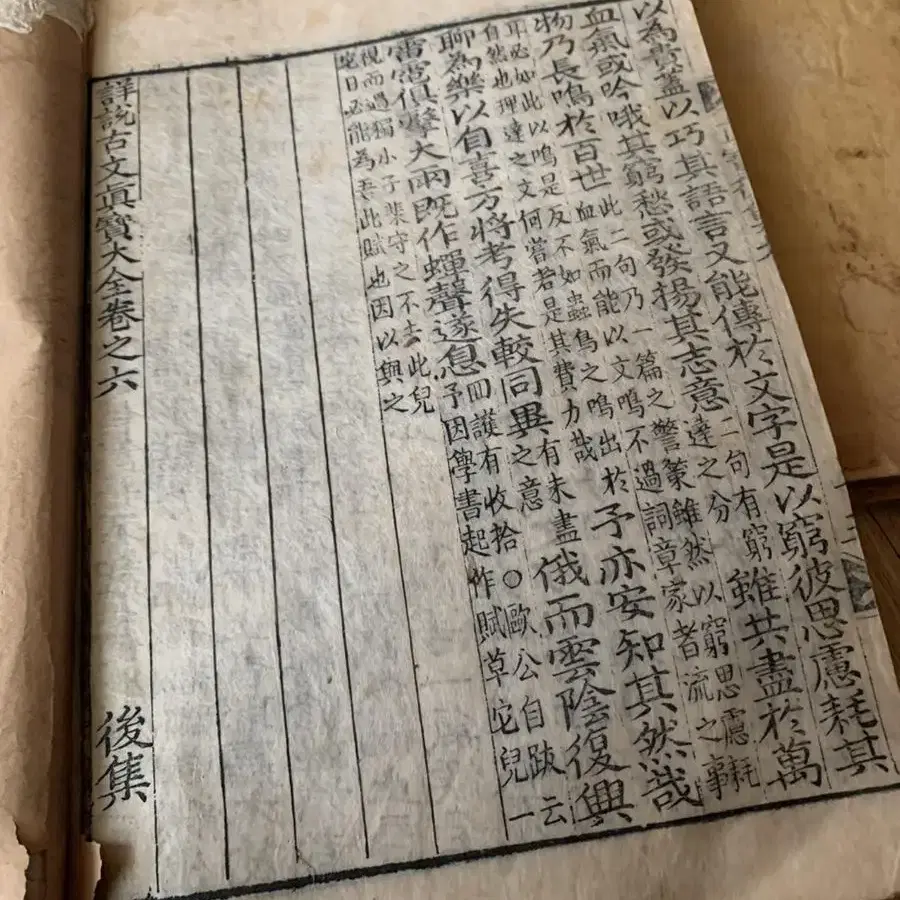 以為貴蓋以巧其語言又能傳於文字是以窮彼思慮耗其
血氣或吟哦其窮愁或發揚其志意二句有窮達之分雖共盡於萬
物乃長鳴於百世此二句乃一篇之警策雖然以窮思慮耗血氣而能以文鳴不過詞章家者流之事
耳必如此以鳴是反不如蟲鳥之鳴出於自然也理達之文何嘗若是其費力哉予亦安知其然哉
聊為樂以自喜方將考得失較同異有未盡之意俄而雲陰復興
雷電俱擊大雨既作蟬聲遂息回護有收拾○歐公自跋云予因學書起作賦草它兒一
視而過獨小子棐守之不去此兒它日必能為吾此賦也因以與之
詳說古文眞寶大全卷之六 後集